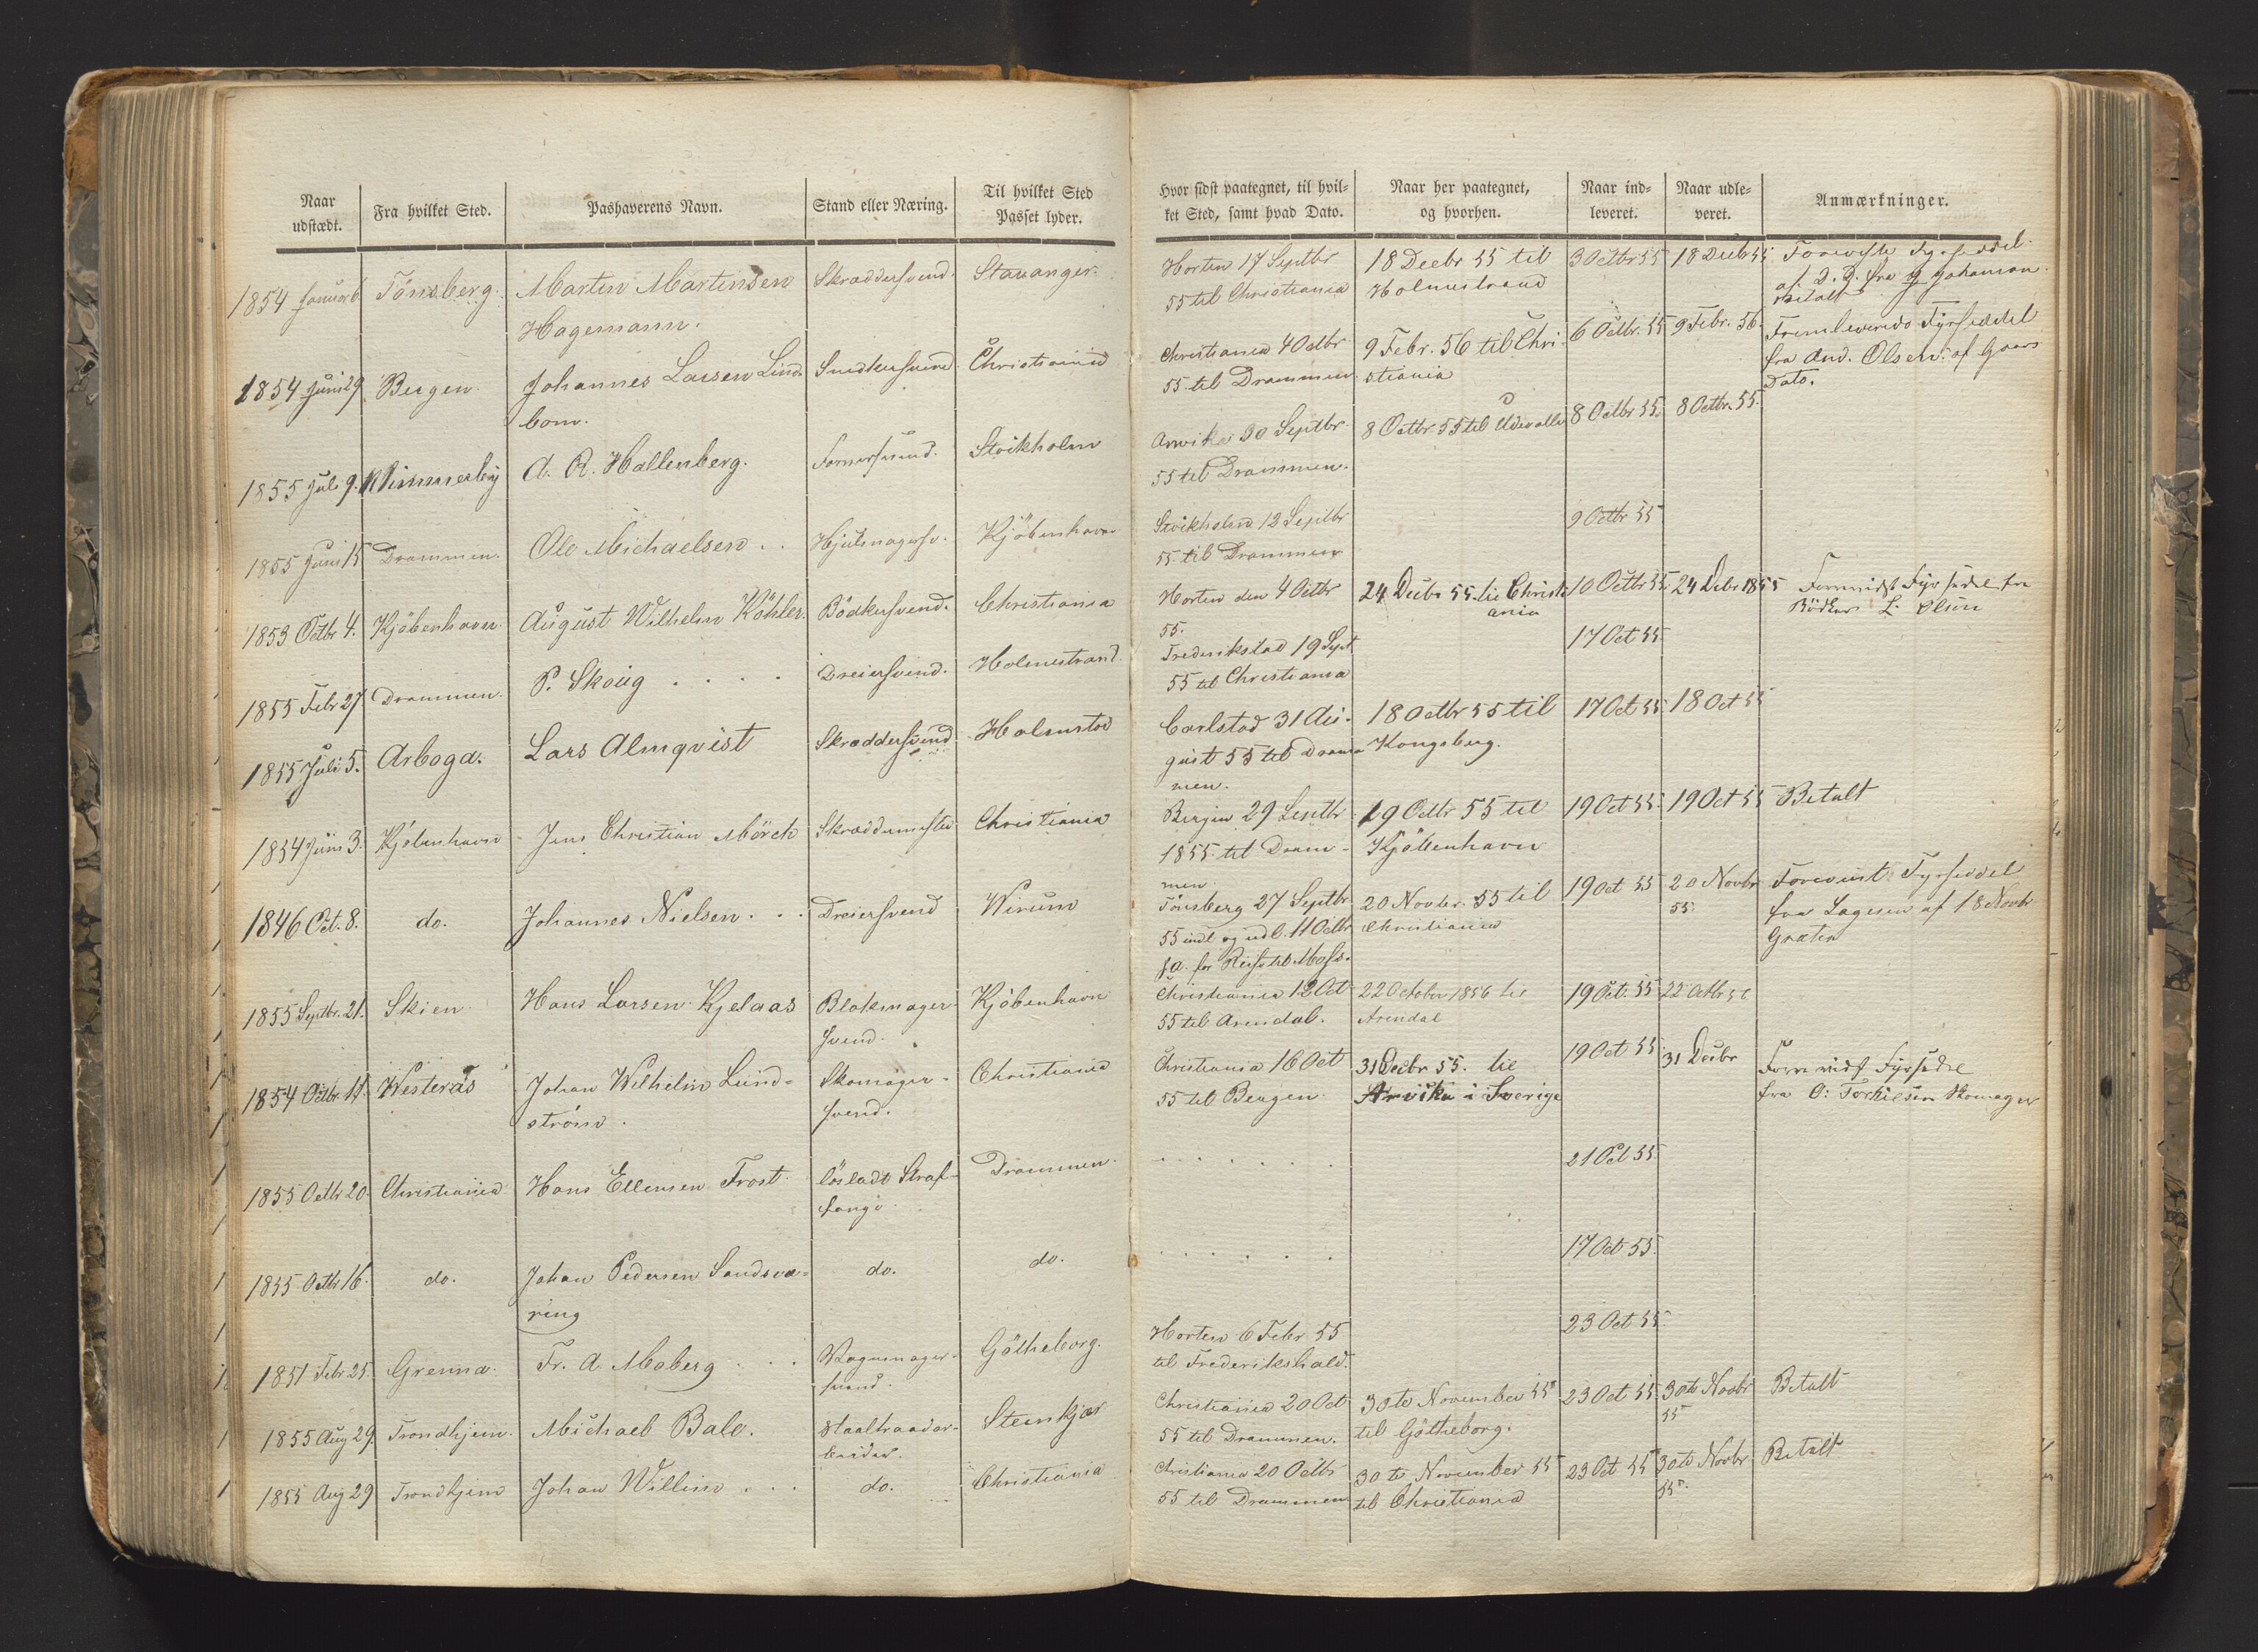 Naar udstædt. Fra hvilket Sted. Pashaverens Navn. Stand eller Næring. Til hvilket Sted Passet lyder. Hvor sidst paategnet, til hvilket Sted, samt hvad Dato. Naar her paategnet, og hvorhen. Naar indleveret. Naar udleveret. Anmærkninger.
1854 Januar 6. Tönsberg. Marten Martinsen Skræddersvend. Stavanger. Horten 17 Septbr 18 Decbr 55 til 3 Octbr 55 18 Decbr 55 Foreviste Fyrseddel
Hagemann. 55 til Christiania Holmestrand af D. D. fra Johansen
Betalt
1854 Juni 29 Bergen Johannes Larsen Lind- Snedkersvend Christiania Christiania 4 Octbr 9 Febr. 56 til Chri- 6 Octbr. 55 9 Febr. 56. Fremleverede Fyrseddel
bom. 55 til Drammen stiania fra And. Olsen af Gaars
Dato.
1855 Juli 9. Wimmerby A. R. Hallenberg. Stockholm Arvika 30 Septbr 8 Octbr 55 til Udevalla 8 Octbr 55. 8 Octbr. 55.
55 til Drammen.
1855 Juni 15 Drammen. Ole Michaelsen . . Hjulmagersv. Kjöbenhavn Stockholm 12 Septbr 9 Octbr 55
55 til Drammen
1853 Octbr 4. Kjöbenhavn. August Wilhelm Köhler. Bödkersvend. Christiania Horten den 4 Octbr 24 Decbr 55. til Christi 10 Octbr 55. 24 Debr 1855 Forevidst Fyrsedel fra
55. ania Bödker L. Olsen
1855 Febr 27 Drammen. P. Skoug . . . . Dreiersvend. Holmestrand. Frederikstad 19 Sept 17 Oct 55
55 til Christiania
1855 Juli 5. Arboga. Lars Almqvist Skræddersvend Halmstad Carlstad 31 Au- 18 Octbr 55 til 17 Oct 55. 18 Oct 55
gust 55 til Dram- Kongsberg.
men.
1854 Juni 3. Kjöbenhavn Jens Christian Mörch Skræddermester Christiania Bergen 29 Septbr 19 Octbr 55 til 19 Oct 55. 19 Oct 55 Betalt
1855 til Dram- Kjöbenhavn
men
1846 Oct. 8. do. Johannes Nielsen . . . Dreiersvend Wirum Tönsberg 27 Septbr 20 Novbr. 55 til 19 Oct 55 20 Novbr Forevist Fyrseddel
55 indl og udl. 11 Octbr Christiania 55. fra Lagesen af 18 Novbr
s. a. for Reise til Moss.
1855 Septbr. 21. Skien Hans Larsen Kjelaas Blokmager- Kjöbenhavn Christiania 12 Oct 22 October 1856 til 19 Oct. 55 22 Octbr 56
svend. 55 til Arendal. Arendal
1854 Octbr. 11. Westerås Johan Wilhelm Lund- Skomager- Christiania Christiania 16 Oct 31 Decbr 55. til 19 Oct 55. 31 Decbr Forevidst Fyrsedel
ström. svend. 55 til Bergen. Arvika i Sverige fra O: Torkilsen Skomager
1855 Octbr 20. Christiania Hans Ellensen Frost. lösladt Straf- Drammen. . . . . . . 21 Oct 55.
fange
1855 Octbr 16. do. Johan Pedersen Sandsvæ- do. do. . . . . . . 17 Oct 55.
ring
1851 Febr 25. Grenna. Fr. A. Moberg . . . Vognmager- Götheborg. Horten 6 Febr 55 23 Oct 55
svend. til Frederikshald.
1855 Aug 29. Trondhjem. Michael Balo. Staaltraadar- Steenkjær Christiania 20 Oct 30te November 55 23 Oct 55. 30te Novbr Betalt
beider. 55 til Drammen. til Götheborg. 55
1855 Aug 29 Trondhjem Johan Willim . . . do. Christiania Christiania 20 Octbr 30te November 55 23 Oct 55 30te Novbr Betalt
55 til Drammen til Christiania 55.